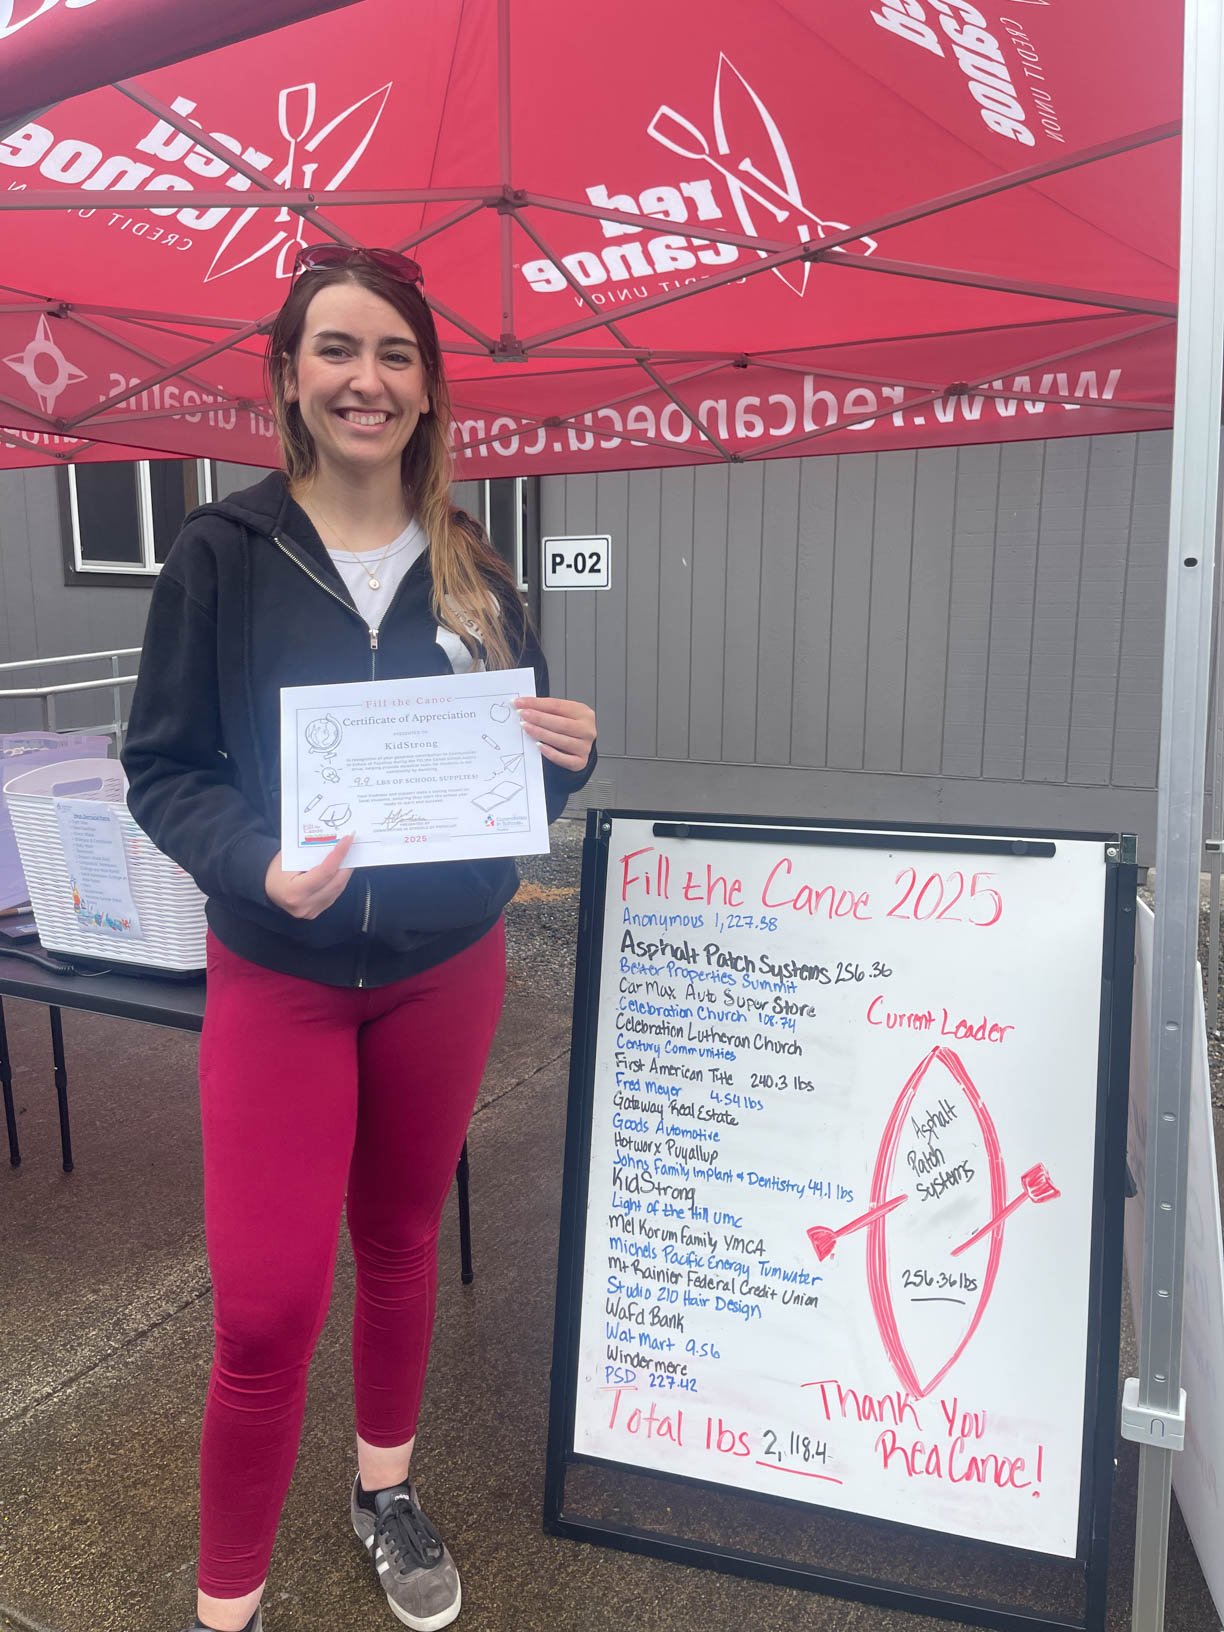 red
canoe
CREDIT UNION
red
canoe
CREDIT UNION
red
canoe
CREDIT UNION
canoe
www.redcanoecu.com
your dreams.
P-02
Fill the Canoe
Certificate of Appreciation
PRESENTED TO
KidStrong
9.9 LBS OF SCHOOL SUPPLIES!
2025
Fill the Canoe 2025
Anonymous 1,227.38
Asphalt Patch Systems 256.36
Better Properties Summit
CarMax Auto Super Store
Celebration Church 108.74
Celebration Lutheran Church
Century Communities
First American Title 240.3 lbs
Fred Meyer 4.54 lbs
Gateway Real Estate
Goods Automotive
Hotworx Puyallup
Johns Family Implant & Dentistry 44.1 lbs
KidStrong
Light of the Hill UMC
Mel Korum Family YMCA
Michels Pacific Energy Tumwater
Mt Rainier Federal Credit Union
Studio 210 Hair Design
WaFd Bank
Walmart 9.56
Windermere
PSD 227.42
Total lbs 2,118.4
Current Leader
Asphalt
Patch
Systems
256.36 lbs
Thank You
Red Canoe!